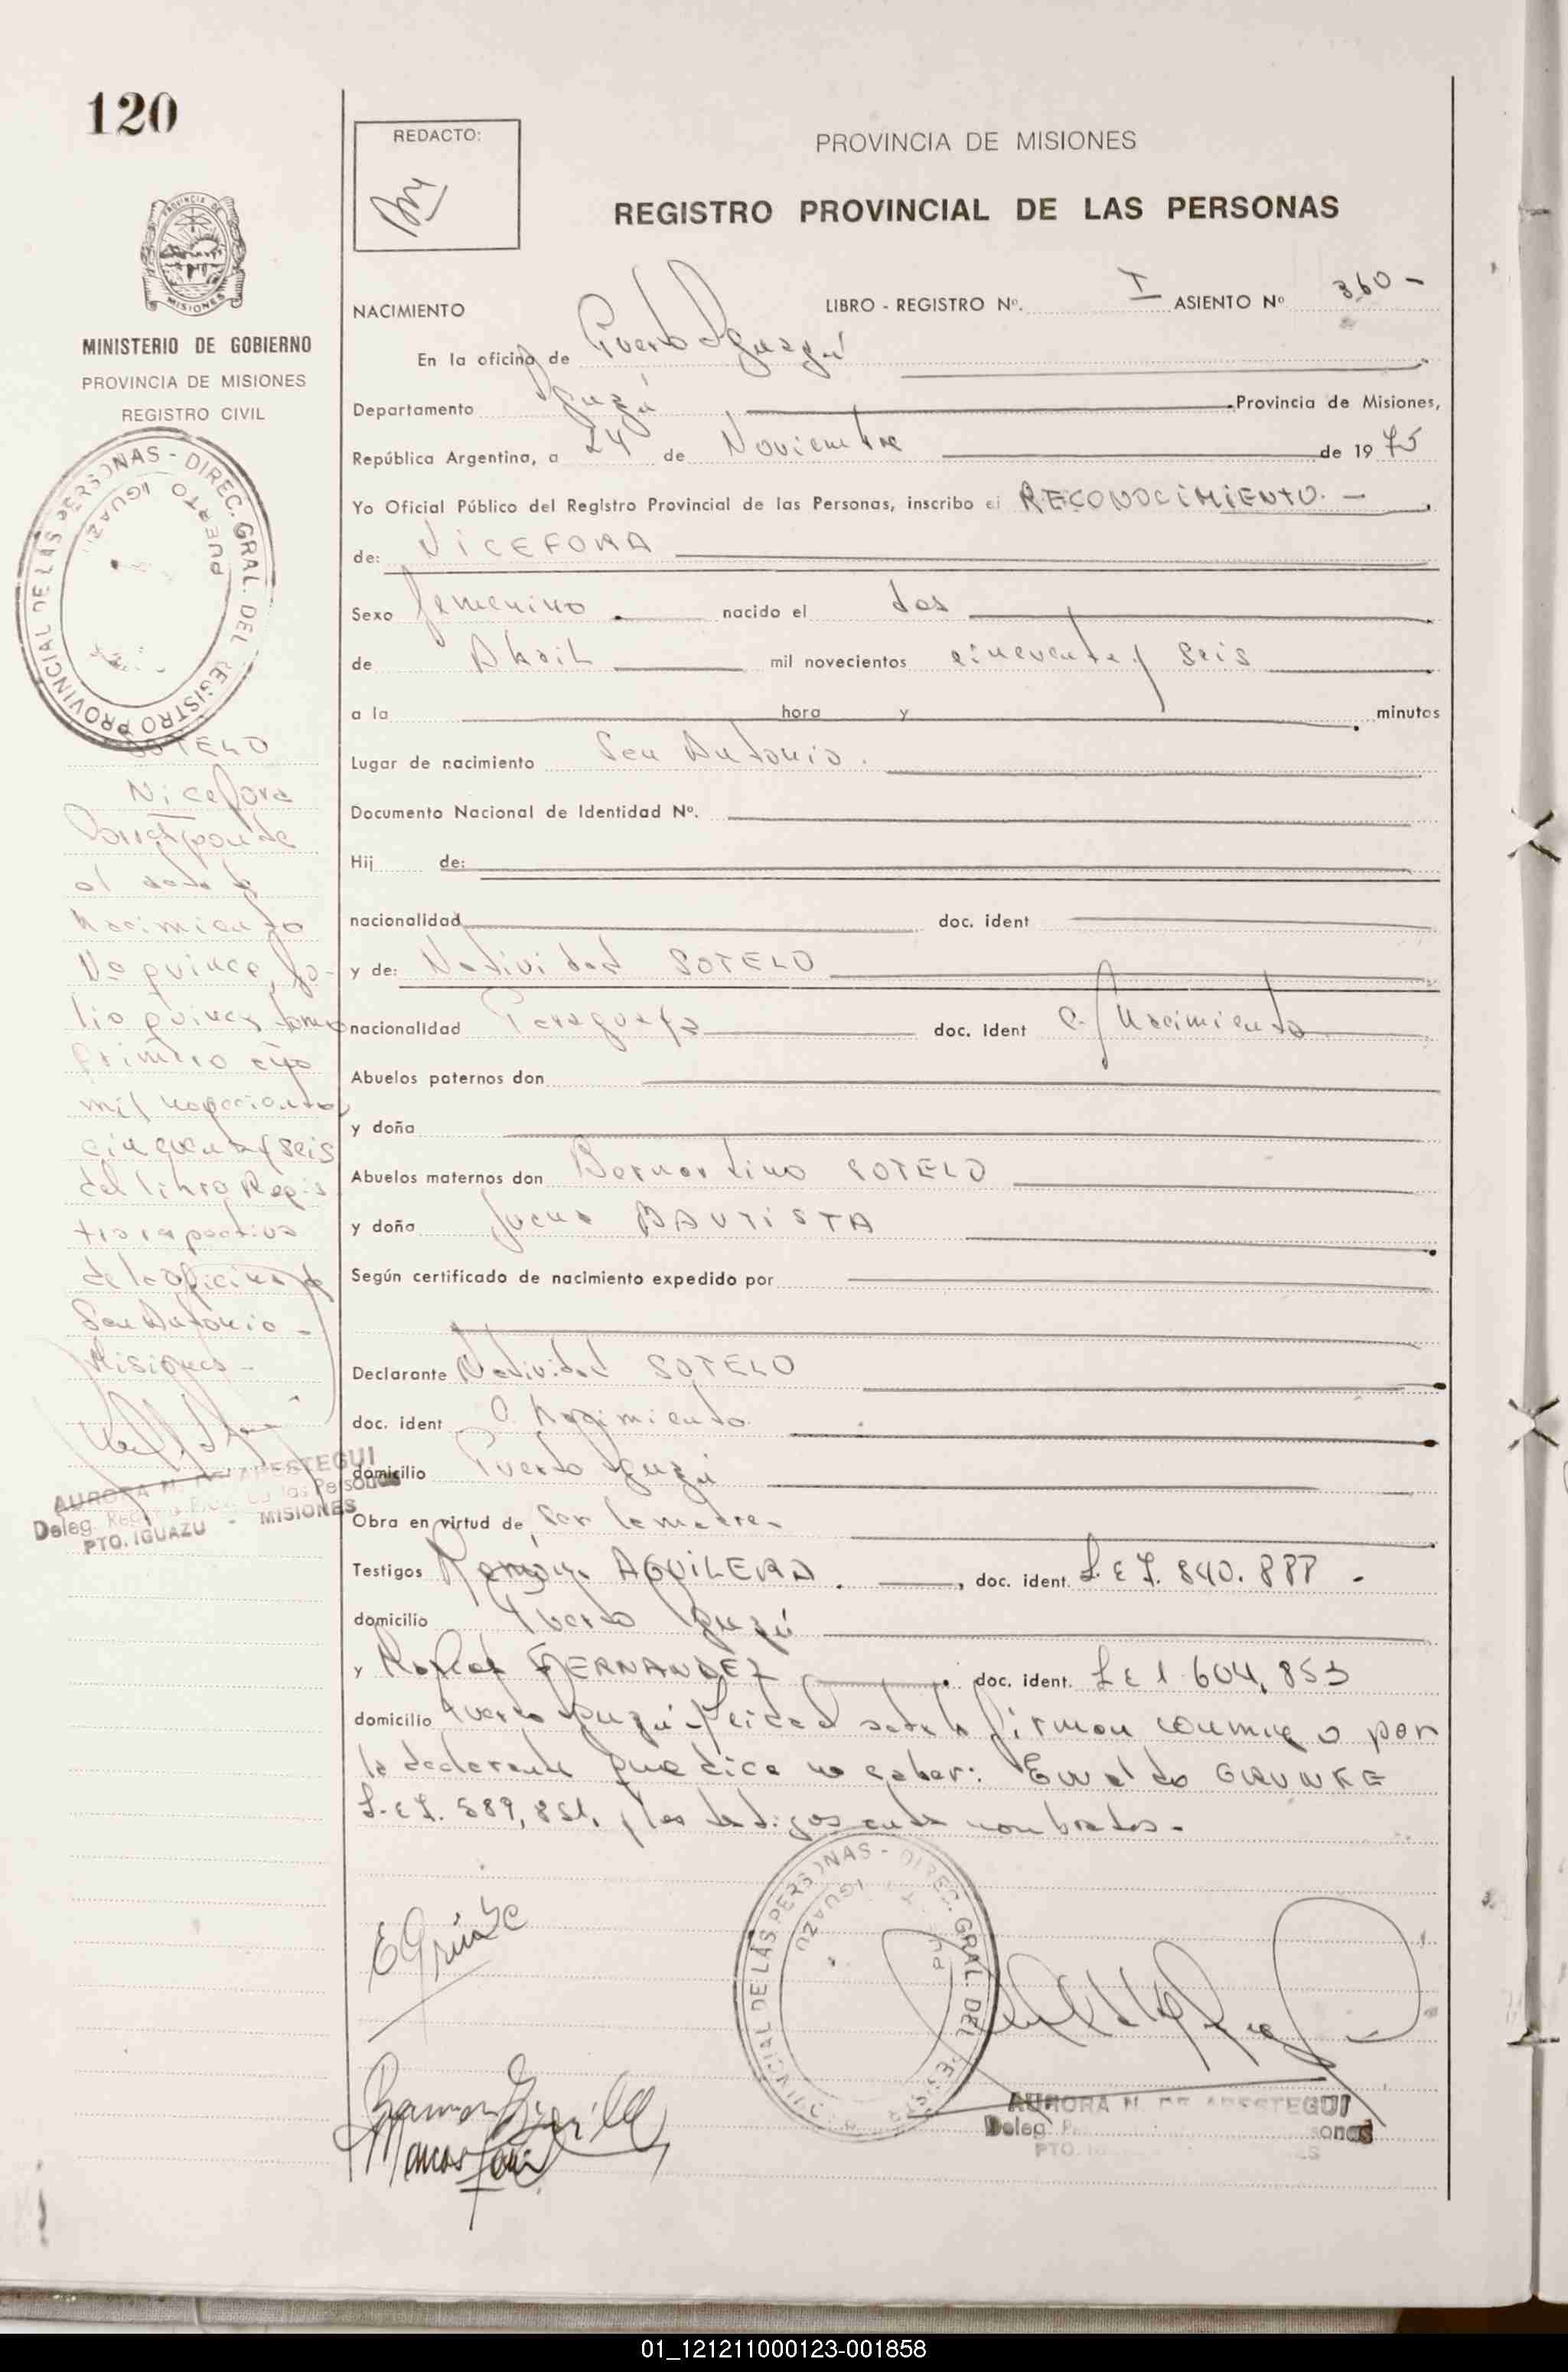 120
REDACTO:
PROVINCIA DE MISIONES
REGISTRO PROVINCIAL DE LAS PERSONAS
PROVINCIA DE MISIONES
MINISTERIO DE GOBIERNO
PROVINCIA DE MISIONES
REGISTRO CIVIL
DIREC. GRAL. DEL REGISTRO PROVINCIAL DE LAS PERSONAS -
PUERTO IGUAZU
SOTELO
Nicefora
Corresponde
al acta de
Nacimiento
No quince, fo-
lio quince, tomo
primero año
mil novecientos
cincuenta y seis
del libro Regis
tro respectivo
de la oficina de
San Antonio -
Misiones -
AURORA N. DE APESTEGUI
Deleg. Reg. de las Personas
PTO. IGUAZU - MISIONES
NACIMIENTO LIBRO - REGISTRO Nº. I ASIENTO Nº 360 -
En la oficina de Puerto Iguazú
Departamento Iguazú Provincia de Misiones,
República Argentina, a 24 de Noviembre de 1975
Yo Oficial Público del Registro Provincial de las Personas, inscribo el RECONOCIMIENTO. -
de: NICEFORA
Sexo femenino. nacido el dos
de Abril mil novecientos cincuenta y seis
a la hora y minutos
Lugar de nacimiento San Antonio.
Documento Nacional de Identidad Nº.
Hij de:
nacionalidad doc. ident
y de: Natividad SOTELO
nacionalidad Paraguaya doc. ident C. Nacimiento
Abuelos paternos don
y doña
Abuelos maternos don Bernardino SOTELO
y doña Juana BAUTISTA
Según certificado de nacimiento expedido por
Declarante Natividad SOTELO
doc. ident C. Nacimiento
domicilio Puerto Iguazú
Obra en virtud de ser la madre.
Testigos Ramón AGUILERA. , doc. ident. L.E 7. 840. 888 -
domicilio Puerto Iguazú
y FERNANDEZ . doc. ident. L E 1. 604, 853
domicilio Puerto Iguazú. Leida el acta la firman conmigo por
la declarante que dice no saber: Ewaldo GRUNKE
L.E 7. 589, 851, y los testigos ante nombrados.
DIREC. GRAL. DEL REGISTRO PROVINCIAL DE LAS PERSONAS -
IGUAZU
AURORA N. DE APESTEGUI
Deleg.
PTO.
01_121211000123-001858